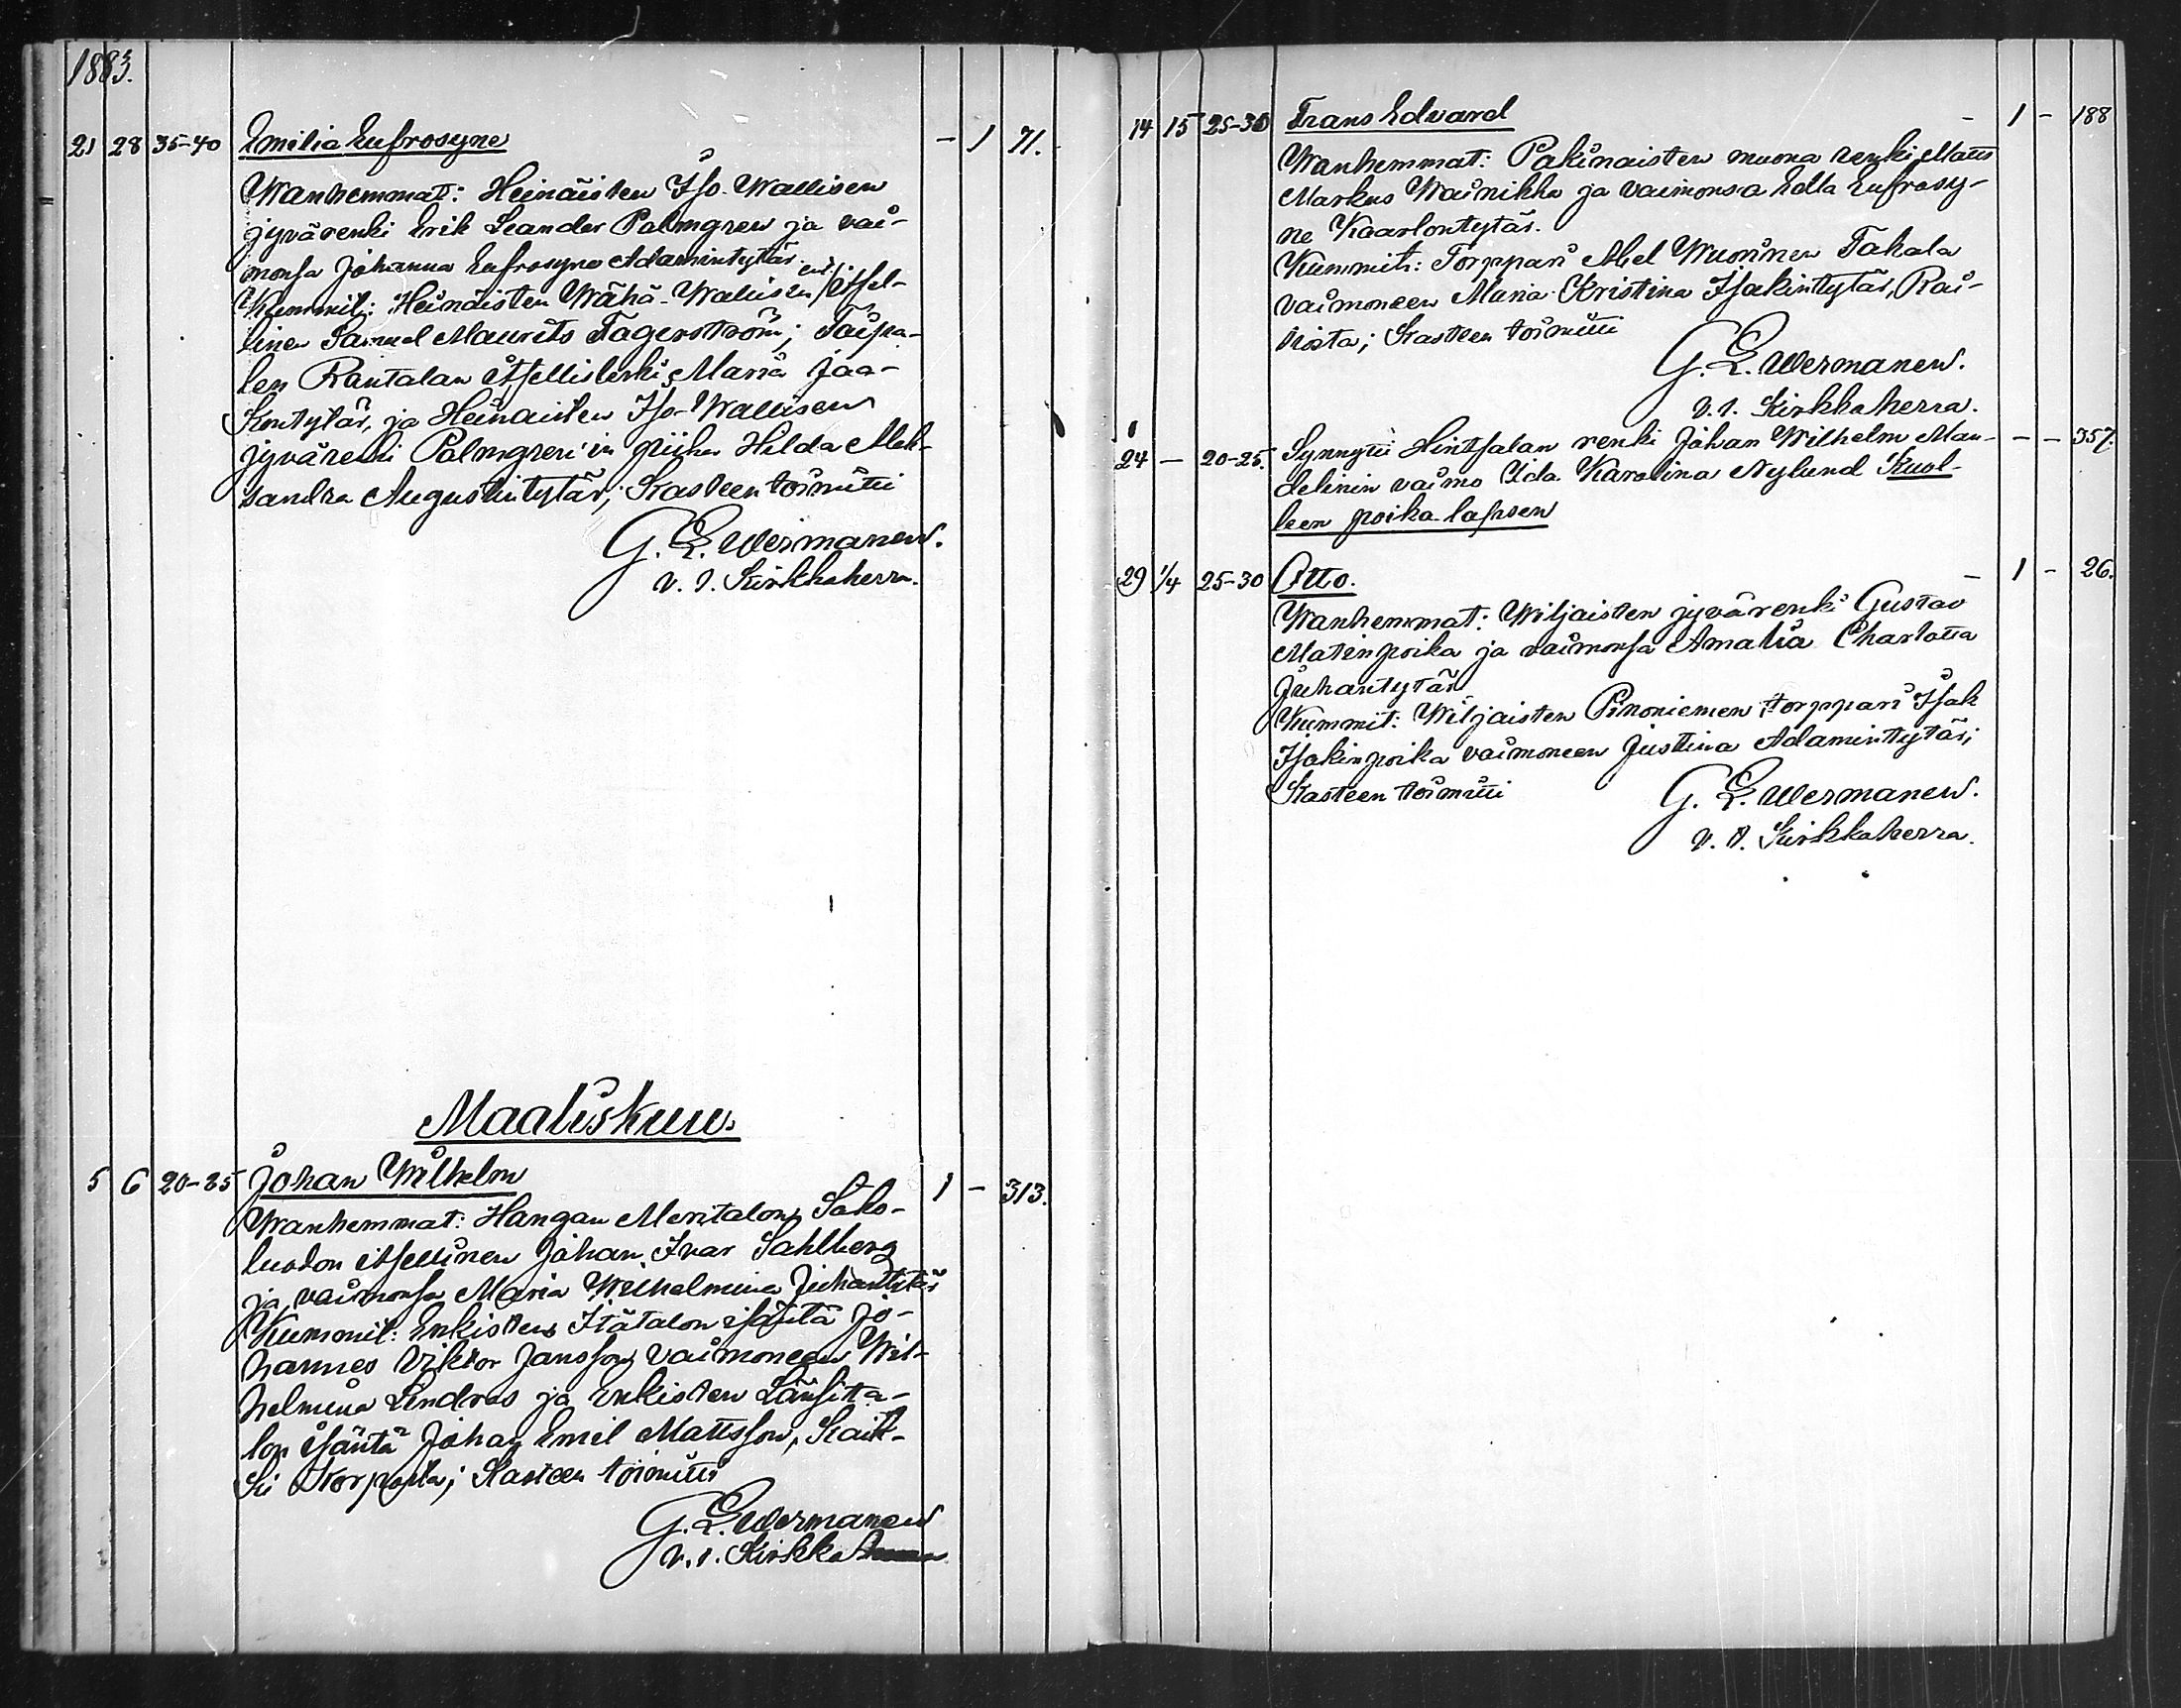 1883.
21 28 35-40 Emilia Eufrosyne - 1 71.
Wanhemmat: Heinäisten Iso-Wallisen
jyvärenki Erik Leander Palmgren ja vai-
monsa Johanna Eufrosyne Adamintytär.
Kummit: Heinäisten Wähä-Wallisen entt. itsel-
linen Samuel Maurits Fagerström; Taipa-
len Rantalan itsellisleski Maria Jaa-
kontytär, ja Heinäisten Iso-Wallisen
jyvärenki Palmgren'in piika Hilda Alek-
sandra Augustintytär; Kasteen toimitti
G. E. Wermanen.
v. t. Kirkkoherra.
Maaliskuu.
5 6 20-25 Johan Wilhelm 1 - 313.
Wanhemmat: Hangan Meritalon, Salo-
luodon itsellinen Johan Ivar Sahlberg
ja vaimonsa Maria Wilhelmina Juhantytär
Kummit: Enkisten Itätalon isäntä Jo-
hannes Viktor Jansson vaimoneen Wil-
helmina Lindros ja Enkisten Länsita-
lon isäntä Johan Emil Mattsson, Kaik-
ki Korposta; Kasteen toimitti
G. E. Wermanen
v. t. Kirkkoherra
14 15 25-30 Frans Edvard - 1 - 188
Wanhemmat: Pakinaisten muona renki Matts
Markus Wainikka ja vaimonsa Edla Eufrosy-
ne Kaarlontytär.
Kummit: Torppari Abel Wuorinen Takala
vaimoneen Maria Kristina Isakintytär, Rai-
sista; Kasteen toimitti
G. E. Wermanen.
v. t. Kirkkoherra.
24 - 20-25. Synnytti Hintsalan renki Johan Wilhelm Man- - - 357.
delinin vaimo Ida Karolina Nylund Kuol-
leen poika-lapsen
29 1/4 25-30 Otto. - 1 - 26.
Wanhemmat: Wiljaisten jyvärenki Gustav
Matinpoika ja vaimonsa Amalia Charlotta
Juhantytär
Kummit: Wiljaisten Pinoniemen torppari Isak
Isakinpoika vaimoneen Justina Adamintytär;
Kasteen toimitti
G. E. Wermanen.
v. t. Kirkkoherra.